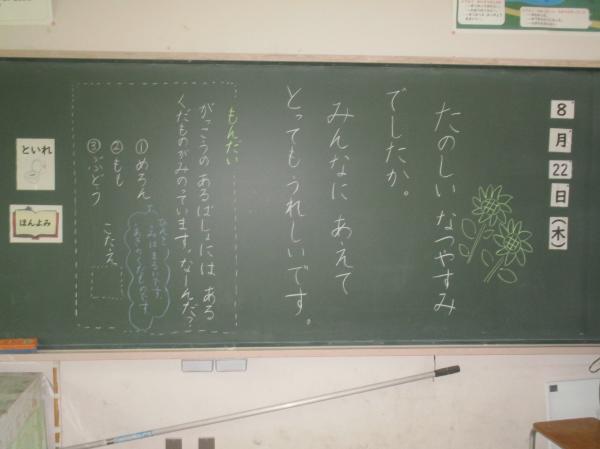 8
月
22
日
(木)
たのしい なつやすみ
でしたか。
みんなに あえて
とっても うれしいです。
もんだい
がっこうの あるばしょには ある
くだものがみのっています。なーんだ?
①めろん
②もも
③ぶどう
こたえ
といれ
ほんよみ